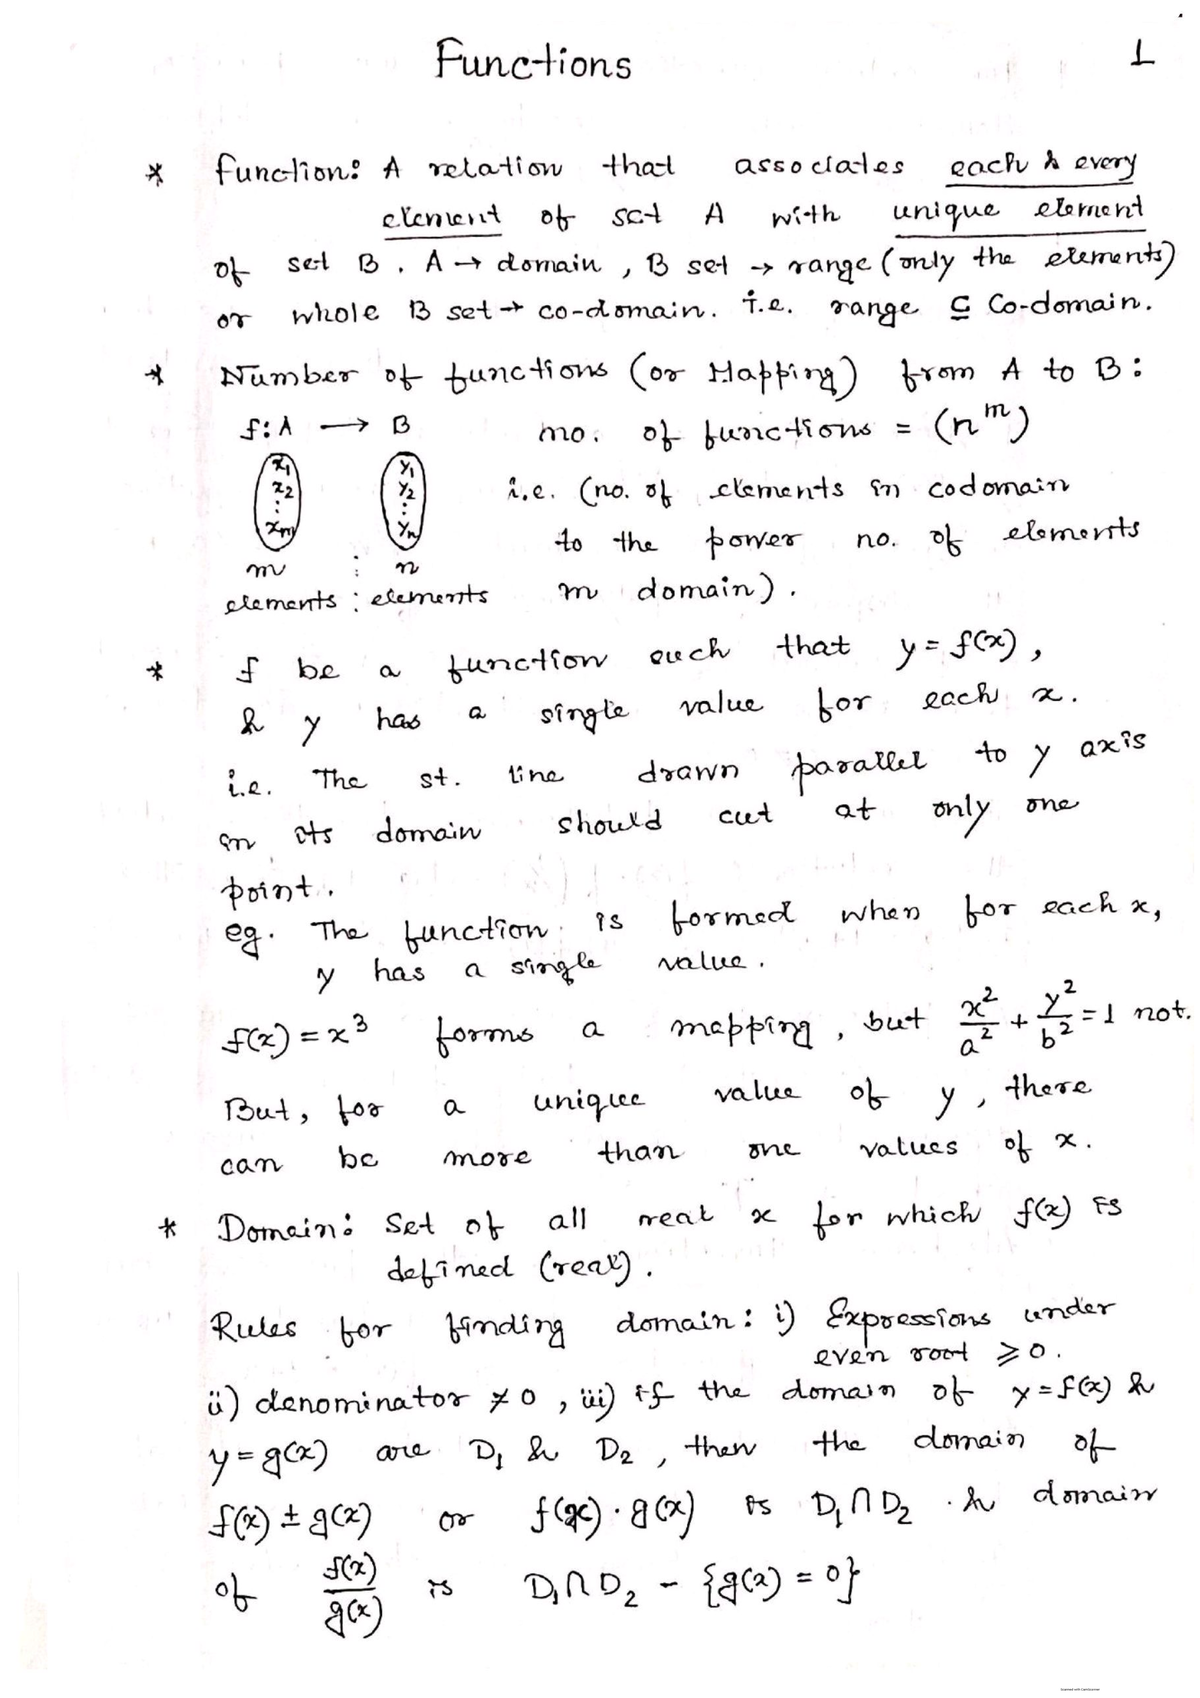 Functions
1
* Function: A relation that associates each & every
element of set A with unique element
of set B. A → domain, B set → range (only the elements)
or whole B set → co-domain. i.e. range ⊆ Co-domain.
* Number of functions (or Mapping) from A to B:
f: A → B no. of functions = (n^m)
x1 y1
x2 y2 i.e. (no. of elements in codomain
⋮ ⋮
xm yn to the power no. of elements
m : n
elements : elements in domain).
* f be a function such that y = f(x),
& y has a single value for each x.
i.e. The st. line drawn parallel to y axis
in its domain should cut at only one
point.
eg. The function is formed when for each x,
y has a single value.
f(x) = x^3 forms a mapping, but x^2/a^2 + y^2/b^2 = 1 not.
But, for a unique value of y, there
can be more than one values of x.
* Domain: Set of all real x for which f(x) is
defined (real).
Rules for finding domain: i) Expressions under
even root ⩾ 0.
ii) denominator ≠ 0, iii) if the domain of y = f(x) &
y = g(x) are D1 & D2, then the domain of
f(x) ± g(x) or f(x) · g(x) is D1 ∩ D2 . & domain
of f(x)/g(x) is D1 ∩ D2 - {g(x) = 0}
Scanned with CamScanner